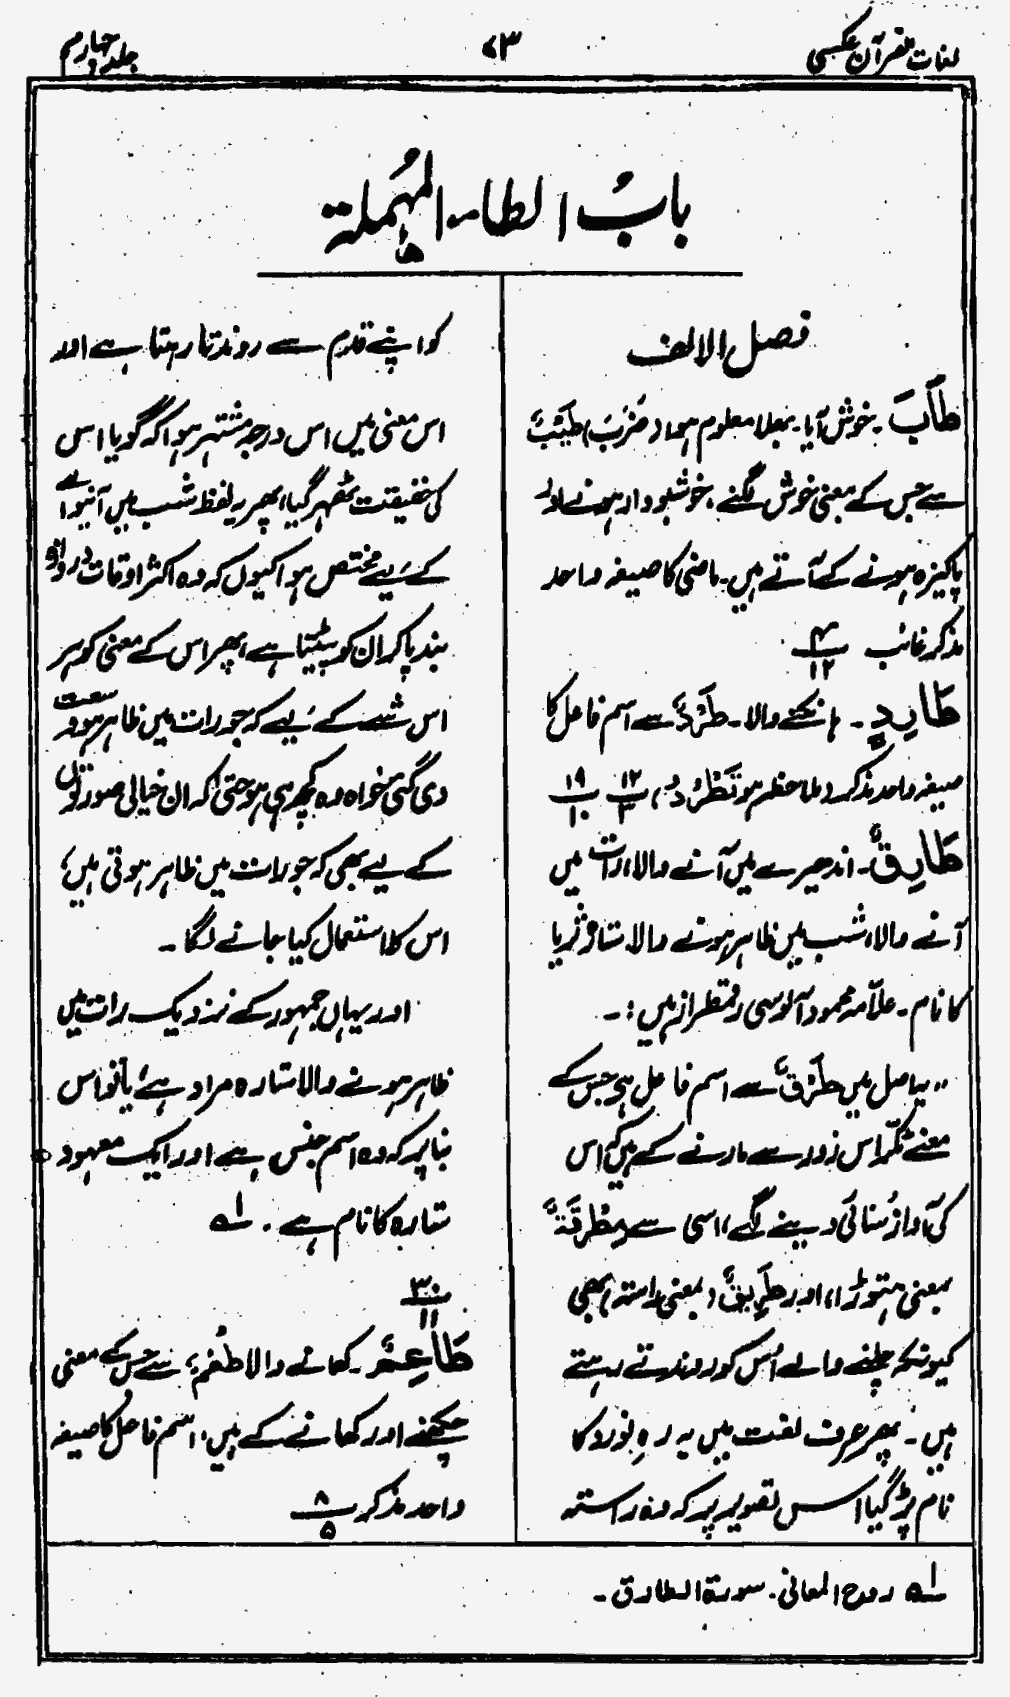 لغات القرآن عکسی
۷۳
جلد چہارم
بابُ الطاء المُہملة
فصل الالف
طَابَ ۔ خوش آیا۔ بھلا معلوم ہوا (ضَرَبَ) طِیْبٌ
سے جس کے معنی خوش لگنے، خوشبودار ہونے اور
پاکیزہ ہونے کے آتے ہیں۔ ماضی کا صیغہ واحد
مذکر غائب ۴/۱۲
طَارِدٍ ۔ ہانکنے والا۔ طَرْدٌ سے اسم فاعل کا
صیغہ واحد مذکر (ملاحظہ ہو تَطْرُدْ)، ۱۲/۳ ۱۹/۱۰
طَارِقٌ ۔ اندھیرے میں آنے والا، رات میں
آنے والا، شب میں ظاہر ہونے والا ستارہ، ثریا
کا نام ۔ علّامہ محمود آلوسی رقمطراز ہیں :۔
،، یہ اصل میں طَرْقٌ سے اسم فاعل ہے جس کے
معنے ٹکّر اس زور سے مارنے کے ہیں کہ اس
کی آواز سُنائی دینے لگے، اسی سے مِطْرَقَةٌ
بمعنی ہتوڑا، اور طَرِیقٌ (بمعنی راستہ) بھی
کیونکہ چلنے والے اُس کو روندتے رہتے
ہیں ۔ پھر عرف لغت میں یہ رہِ نورد کا
نام پڑ گیا اس تصویر پر کہ وہ راستہ
کو اپنے قدم سے روندتا رہتا ہے اور
اس معنی میں اس درجہ مشتہر ہوا کہ گویا اس
کی حقیقت ٹھہر گیا، پھر یہ لفظ شب میں آنیوالے
کے لیے مختص ہوا کیوں کہ وہ اکثر اوقات دروازہ
بند پا کر ان کو پیٹتا ہے، پھر اس کے معنی کو ہر
اس شے کے لیے کہ جو رات میں ظاہر ہو وسعت
دی گئی خواہ وہ کچھ ہی ہو حتیٰ کہ ان خیالی صورتوں
کے لیے بھی کہ جو رات میں ظاہر ہوتی ہیں،
اس کا استعمال کیا جانے لگا ۔
اور یہاں جمہور کے نزدیک رات میں
ظاہر ہونے والا ستارہ مراد ہے، یا تو اس
بنا پر کہ وہ اسم جنس ہے اور ایک معہود
ستارہ کا نام ہے ۔ لہ
۳۰/۱۱
طَاعِمٍ ۔ کھانے والا طُعْمٌ، سے جس کے معنی
چکھنے اور کھانے کے ہیں، اسم فاعل کا صیغہ
واحد مذکر ۸/۵
لہ روح المعانی ۔ سورة الطارق ۔